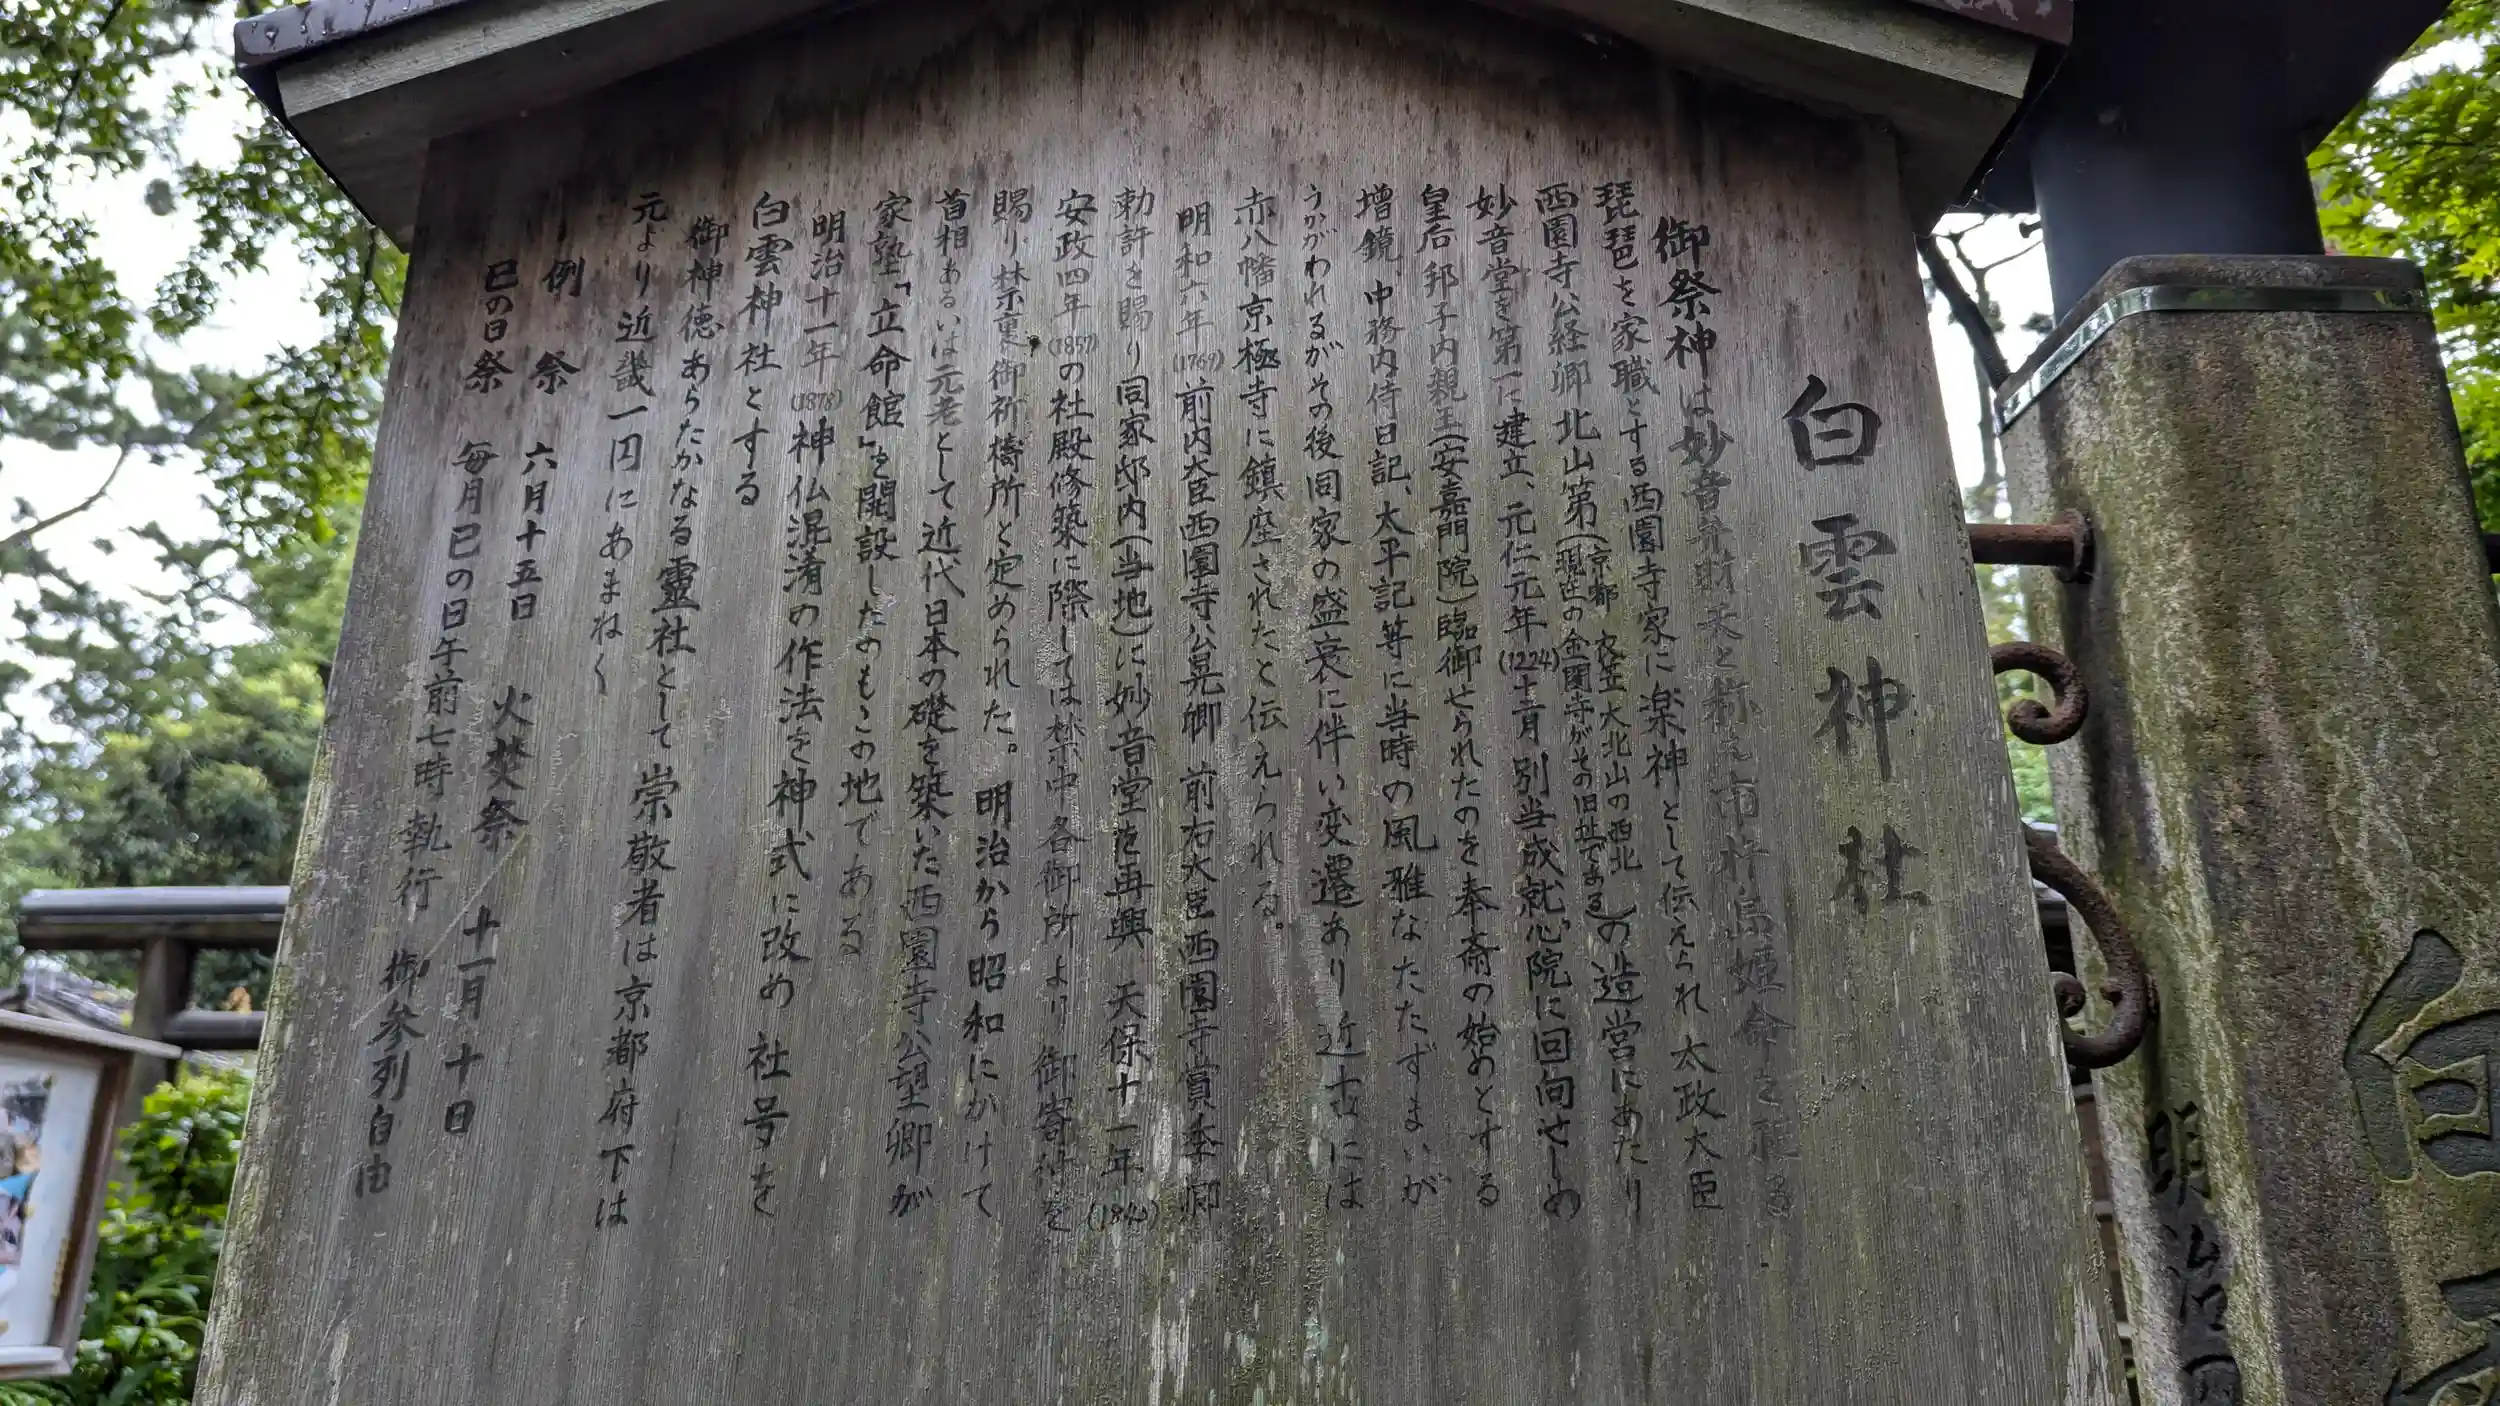 白雲神社
御祭神は妙音弁財天と称え市杵島姫命を祀る
琵琶を家職とする西園寺家に楽神として伝えられ太政大臣
西園寺公経卿 北山第(京都 衣笠 大北山の西北 現在の金閣寺がその旧趾である)の造営にあたり
妙音堂を第一に建立、元仁元年(1224)十二月別当成就心院に回向せしめ
皇后邦子内親王(安嘉門院)臨御せられたのを奉斎の始めとする
増鏡、中務内侍日記、太平記等に当時の風雅なたたずまいが
うかがわれるがその後同家の盛衰に伴い変遷あり近古には
赤八幡京極寺に鎮座されたと伝えられる。
明和六年(1769)前内大臣西園寺公晃卿 前右大臣西園寺賞季卿
勅許を賜り同家邸内(当地)に妙音堂を再興 天保十一年(1840)
安政四年(1857)の社殿修築に際しては禁中各御所より御寄附を
賜り、禁裏御祈禱所と定められた。明治から昭和にかけて
首相あるいは元老として近代日本の礎を築いた西園寺公望卿が
家塾「立命館」を開設したのもこの地である
明治十一年(1878)神仏混淆の作法を神式に改め 社号を
白雲神社とする
御神徳あらたかなる靈社として崇敬者は京都府下は
元より近畿一円にあまねく
例祭 六月十五日 火焚祭 十一月十日
巳の日祭 毎月巳の日午前七時執行 御参列自由
白雲
明治